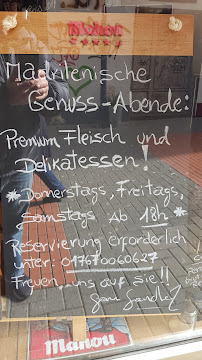 Manou
Madritenische
Genuss-Abende:
Premium Fleisch und
Delikatessen!
* Donnerstags, Freitags, *
Samstags Ab 18h
Reservierung erforderlich
unter: 017670060627
Freuen, uns auf sie!!
Manou